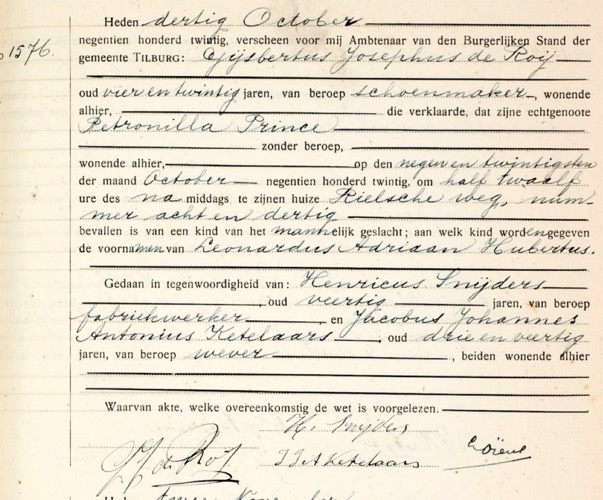 Heden dertig October
1576. negentien honderd twintig, verscheen voor mij Ambtenaar van den Burgerlijken Stand der
gemeente TILBURG: Gijsbertus Josephus de Roij
oud vier en twintig jaren, van beroep schoenmaker, wonende
alhier, die verklaarde, dat zijne echtgenoote
Petronilla Prince
zonder beroep,
wonende alhier, op den negen en twintigsten
der maand October negentien honderd twintig, om half twaalf
ure des na middags te zijnen huize Rielsche weg, num-
mer acht en dertig
bevallen is van een kind van het mannelijk geslacht; aan welk kind worden gegeven
de voornamen van Leonardus Adriaan Hubertus.
Gedaan in tegenwoordigheid van: Henricus Snijders
, oud veertig jaren, van beroep
fabriekwerker, en Jacobus Johannes
Antonius Ketelaars, oud drie en veertig
jaren, van beroep wever, beiden wonende alhier
Waarvan akte, welke overeenkomstig de wet is voorgelezen.
H. Snijders
J J A Ketelaars